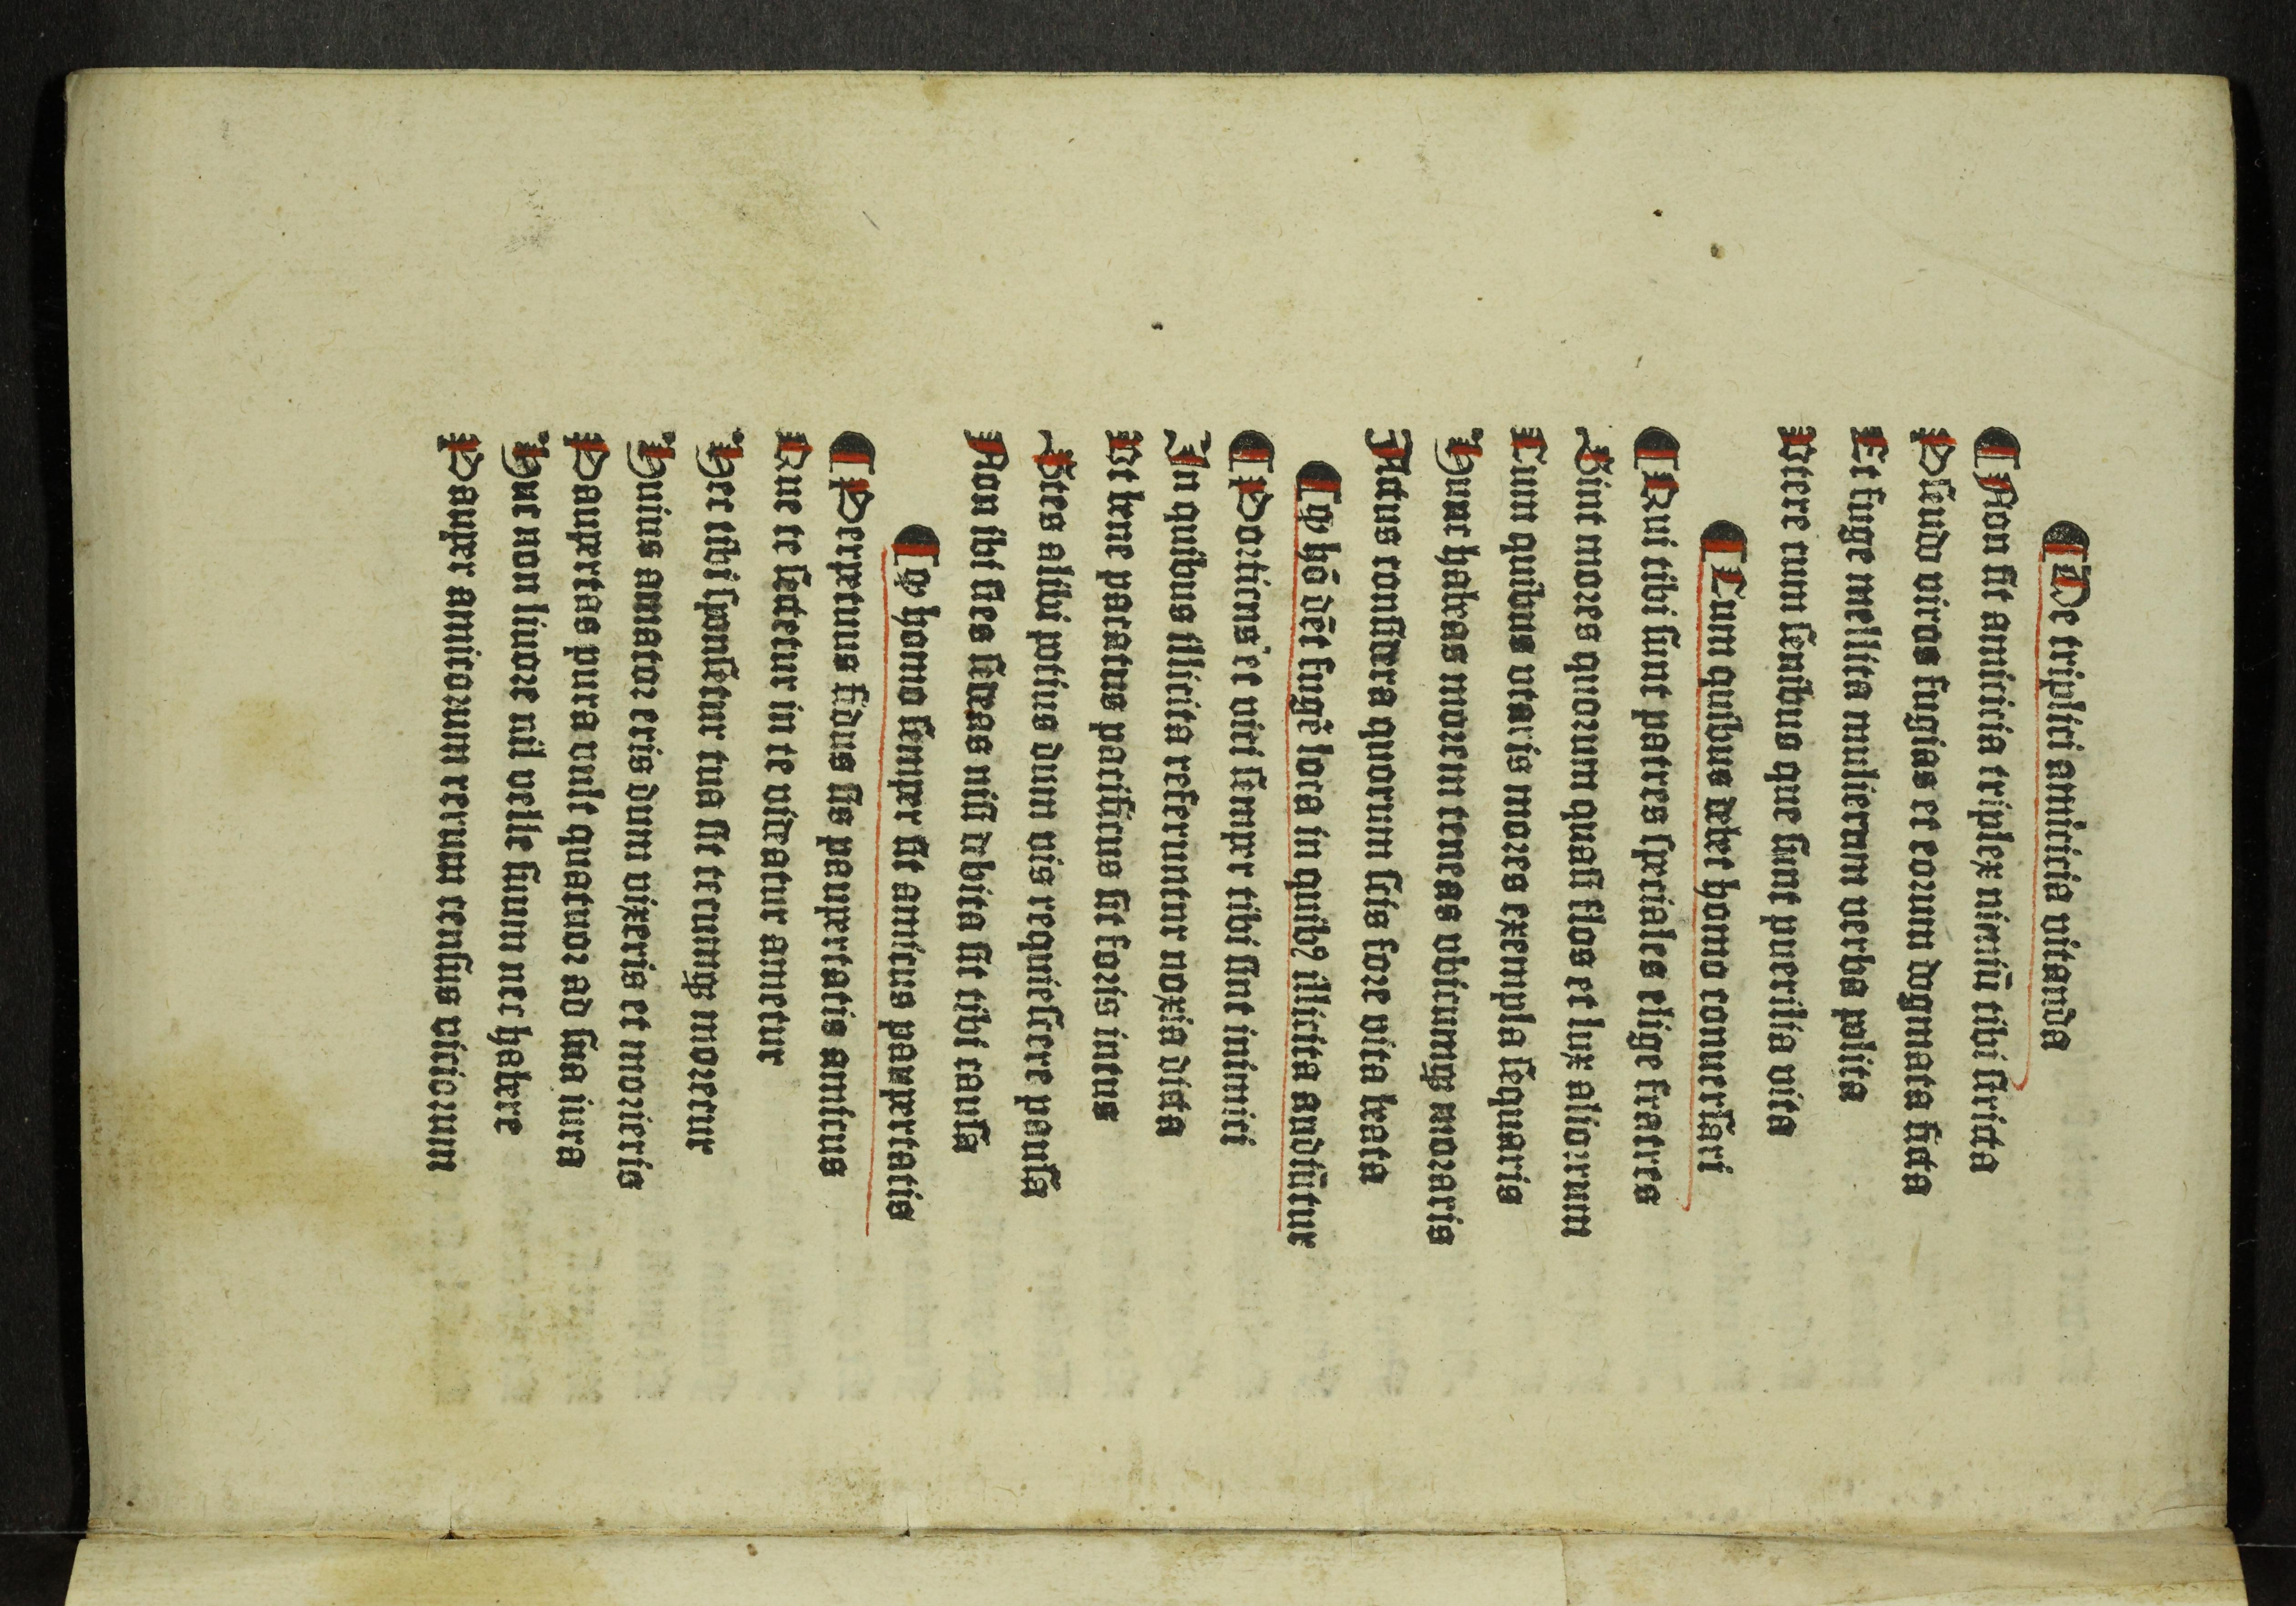 ¶ De triplici amicicia vitanda
¶ Non sit amicicia triplex nimiū tibi stricta
Pseudo viros fugias et eorum dogmata ficta
Et fuge mellita mulierum verba polita
Vtere cum senibus que sunt puerilia vita
¶ Cum quibus debet homo conuersari
¶ Qui tibi sunt patres speciales elige fratres
Sint mores quorum quasi flos et lux aliorum
Cum quibus vtaris mores exempla sequaris
Hunc habeas morem teneas vbicumqꝫ moraris
Actus considera quorum scis fore vita beata
¶ Qp hō dēt fugē loca in quibꝰ illicita audiūtur
¶ Porticus et vici semper tibi sint inimici
In quibus illicita referuntur noxia dicta
Vt bene paratus pacificus sit foris intus
Stes alibi potius dum vis requiescere pausa
Non ibi stes sedeas nisi debita sit tibi causa
¶ Qp homo semper sit amicus paupertatis
¶ Perpetuus fidus sis paupertatis amicus
Que te sectetur in te videatur ametur
Hec tibi sponsetur tua sit tecumqꝫ moretur
Huius amator eris dum vixeris et morieris
Paupertas pura vult quatuor ad sua iura
Huc non liuore nil velle suum nec habere
Pauper amicorum rerum census viciorum